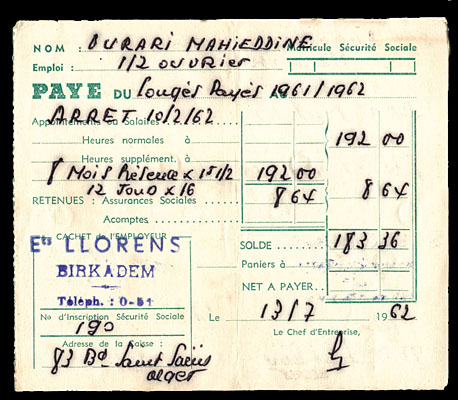 NOM : OURARI MAHIEDDINE Matricule Sécurité Sociale
Emploi : 1/2 OUVRIER
PAYE DU Congés Payés AU 1961/1962
ARRET 10/2/62
Appointements ou Salaires
Heures normales à 192 00
Heures supplément. à
8 Mois Présence x 1 51/2 192 00
12 Jours x 16
RETENUES : Assurances Sociales 8 64 8 64
Acomptes
CACHET de l'EMPLOYEUR
Ets LLORENS SOLDE 183 36
BIRKADEM Paniers à
Téléph. : 0-51 NET A PAYER
No d'Inscription Sécurité Sociale Le 13/7 1962
190 Le Chef d'Entreprise,
Adresse de la Caisse :
83 Bd Saint Saëns
Alger